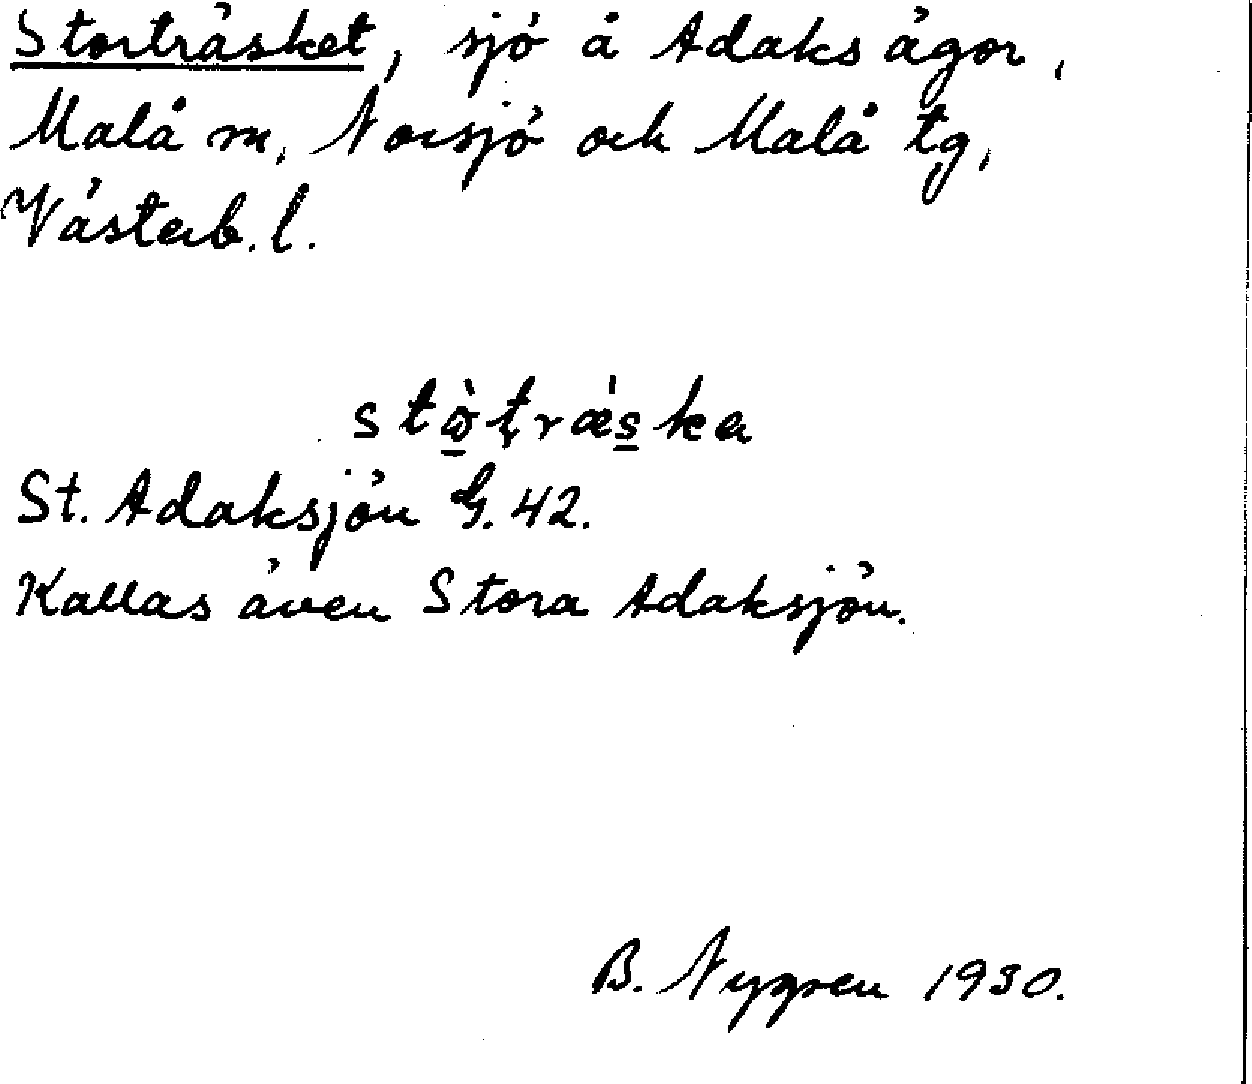 Storträsket, sjö å Adaks ägor,
Malå sn, Norsjö och Malå tg,
Västerb. l.
stò̠ṭræ̍s̠ka
St. Adaksjön G. 42.
Kallas även Stora Adaksjön.
B. Nygren 1930.